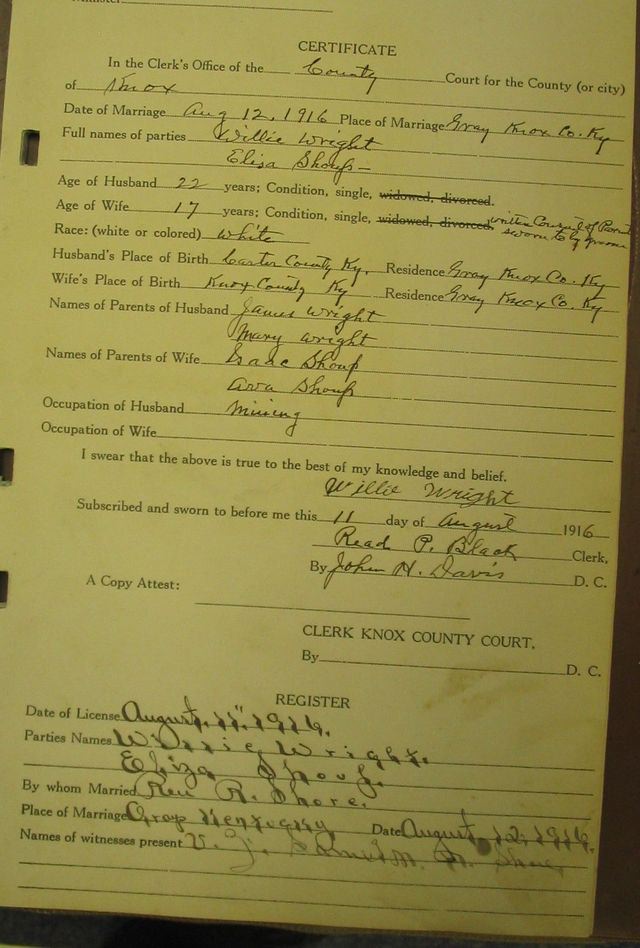 Minister
CERTIFICATE
In the Clerk's Office of the County Court for the County (or city)
of Knox
Date of Marriage Aug 12, 1916 Place of Marriage Gray Knox Co. Ky
Full names of parties Willie Wright
Elisa Shoup
Age of Husband 22 years; Condition, single, widowed, divorced.
Age of Wife 17 years; Condition, single, widowed, divorced. written Consent of Parents
sworn to by groom
Race: (white or colored) White
Husband's Place of Birth Carter County Ky. Residence Gray Knox Co. Ky
Wife's Place of Birth Knox County Ky Residence Gray Knox Co. Ky
Names of Parents of Husband James Wright
Mary Wright
Names of Parents of Wife Isaac Shoup
Shoup
Occupation of Husband Mining
Occupation of Wife
I swear that the above is true to the best of my knowledge and belief.
Willie Wright
Subscribed and sworn to before me this 11 day of August 1916
Read P. Black Clerk,
By John H. Davis D. C.
A Copy Attest:
CLERK KNOX COUNTY COURT.
By D. C.
REGISTER
Date of License August, 11", 1916.
Parties Names Willie Wright.
Eliza Shoup.
By whom Married Rev R. Shore.
Place of Marriage Gray Kentucky Date August 12, 1916.
Names of witnesses present